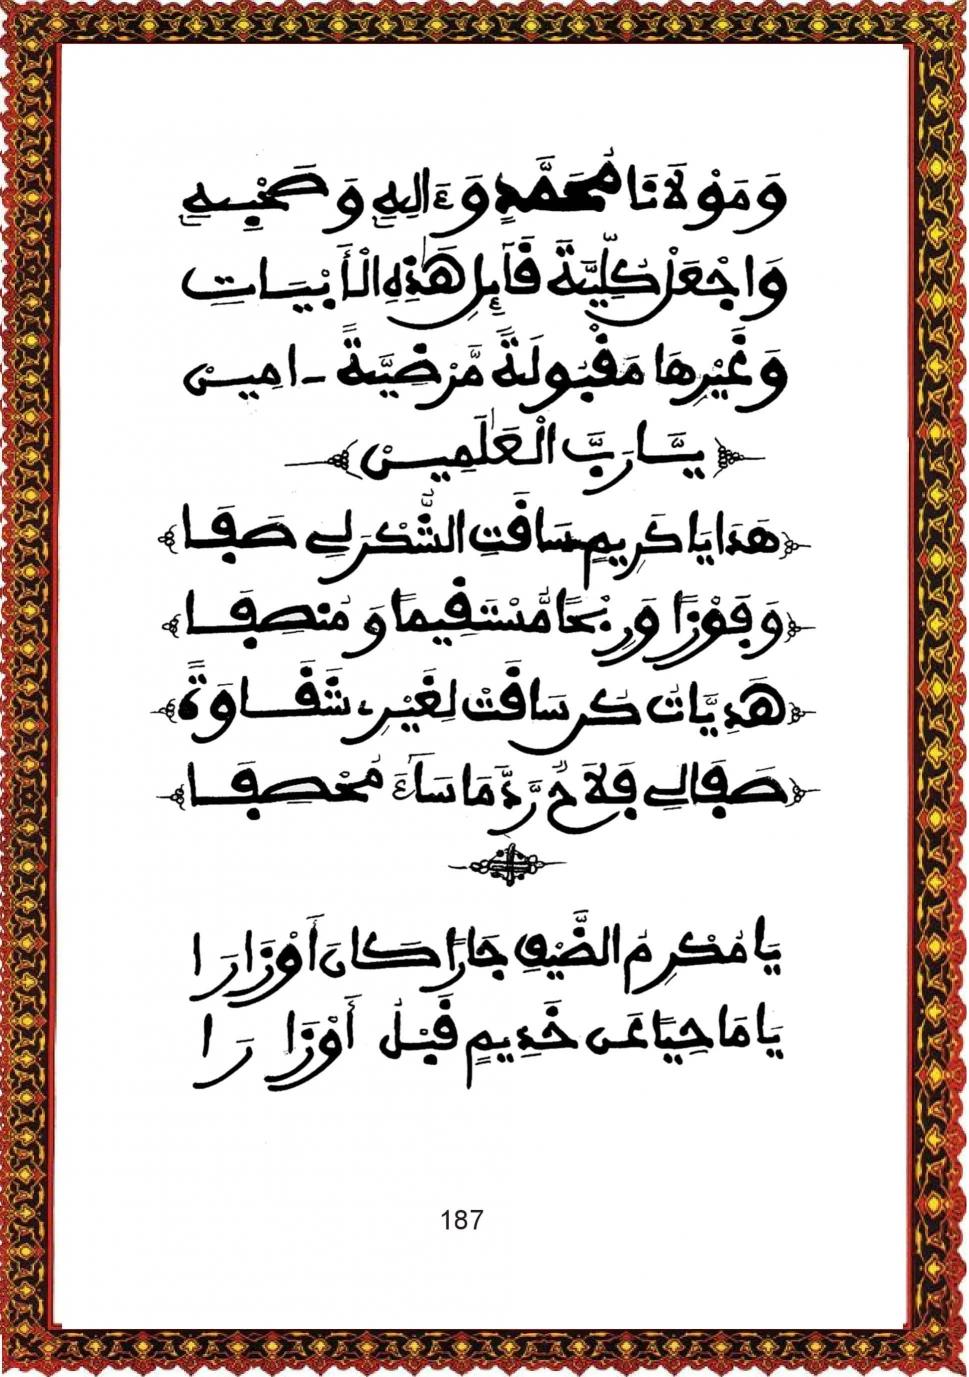 وَمَوْلَانَا مُحَمَّدٍ وَءَالِهِ وَصَحْبِهِ
وَاجْعَلْ كُلِّيَّةَ قَآئِلِ هَٰذِهِ الْأَبْيَاتِ
وَغَيْرِهَا مَقْبُولَةً مَّرْضِيَّةً ـامِينْ
يَـارَبَّ الْعَٰلَمِينْ
هَدَايَا كَرِيمٍ سَاقَتِ الشُّكْرَ لِي صَفَا
وَفَوْزًا وَرِبْحًا مُّسْتَقِيمًا وَمُنصِفَا
هَدِيَّاتُ كُرْ سَاقَتْ لِغَيْرِي شَقَاوَةً
صَفَا لِي فَلَا حُرَّدْ مَا سَاءَ مُحْصِفَا
يَا مُكْرِمَ الضَّيْفِ جَارًا كَانَ أَوْ زَارَا
يَا مَاحِيًا عَن خَدِيمٍ قَبْلُ أَوْزَارَا
187